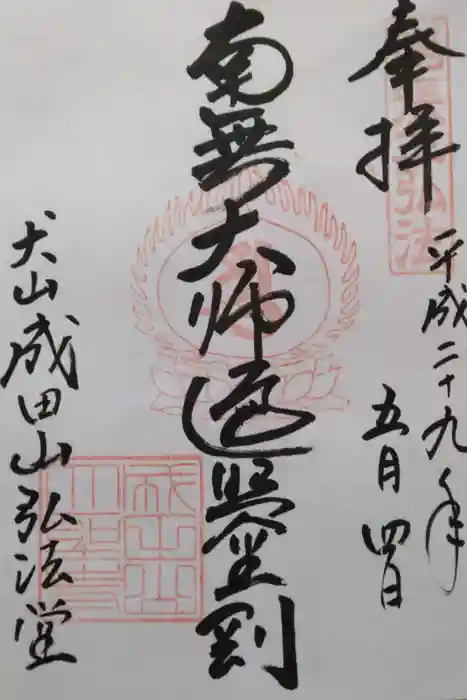 奉拝
平成二十九年
五月四日
南無大師遍照金剛
犬山成田山弘法堂
成田山
大聖寺